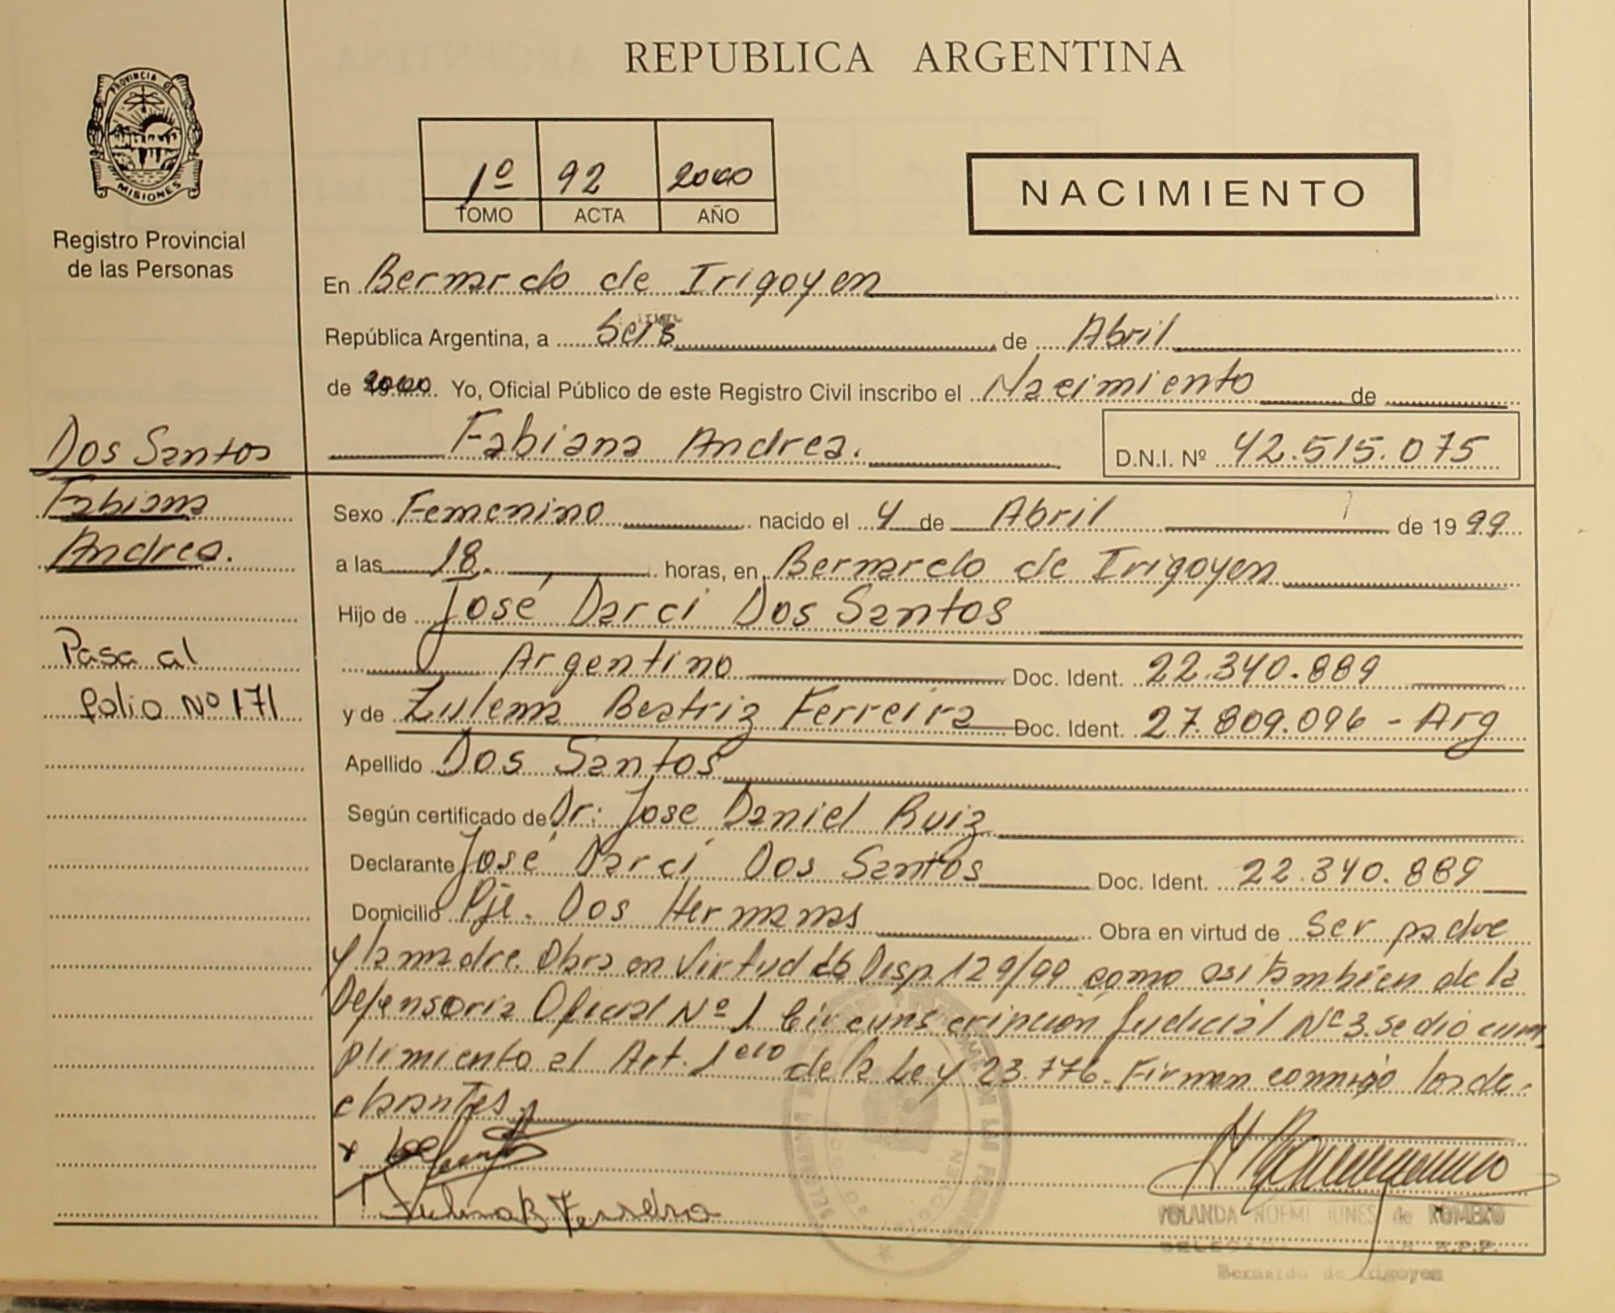 REPUBLICA ARGENTINA
PROVINCIA DE
MISIONES
Registro Provincial
de las Personas
1º 92 2000
TOMO ACTA AÑO
NACIMIENTO
En Bernardo de Irigoyen
República Argentina, a Seis de Abril
de 2000. Yo, Oficial Público de este Registro Civil inscribo el Nacimiento de
Fabiana Andrea. D.N.I. Nº 42.515.075
Dos Santos
Fabiana
Andrea.
Pasa al
folio Nº 171
Sexo Femenino nacido el 4 de Abril de 1999
a las 18. horas, en Bernardo de Irigoyen
Hijo de José Darci Dos Santos
Argentino Doc. Ident. 22.340.889
y de Zulema Beatriz Ferreira Doc. Ident. 27.809.096 - Arg
Apellido Dos Santos
Según certificado de Dr. Jose Daniel Ruiz
Declarante José Darci Dos Santos Doc. Ident. 22.340.889
Domicilio Pje. Dos Hermanas Obra en virtud de Ser padre
y la madre. Obra en Virtud Disp. 129/99 como asi tambien de la
Defensoria Oficial Nº 1 Circunscripcion Judicial Nº 3. se dio cum
plimiento al Art. 1ero de la Ley 23.776. Firman conmigo los de-
clarantes.
YOLANDA NOEMI de ROMERO
R.P.P.
Bernardo de Irigoyen